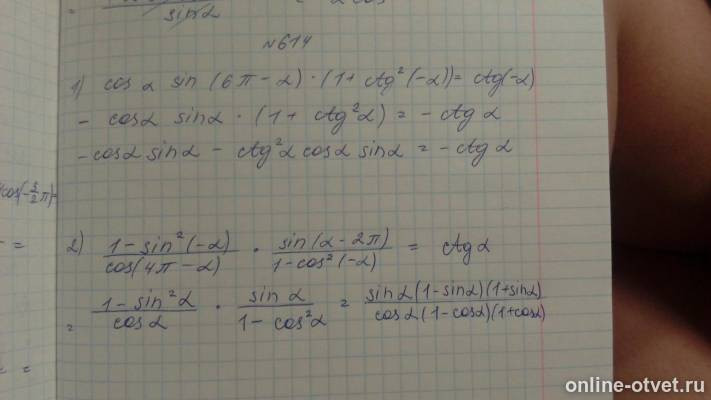 sin α
№614
1) cos α sin (6π - α) · (1 + ctg²(-α)) = ctg(-α)
- cos α sin α · (1 + ctg²α) = - ctg α
- cos α sin α - ctg²α cos α sin α = - ctg α
cos(-3/2 π)
2) (1 - sin²(-α))/(cos(4π - α)) · (sin(α - 2π))/(1 - cos²(-α)) = ctg α
= (1 - sin²α)/(cos α) · (sin α)/(1 - cos²α) = (sin α(1 - sin α)(1 + sin α))/(cos α(1 - cos α)(1 + cos α))
online-otvet.ru